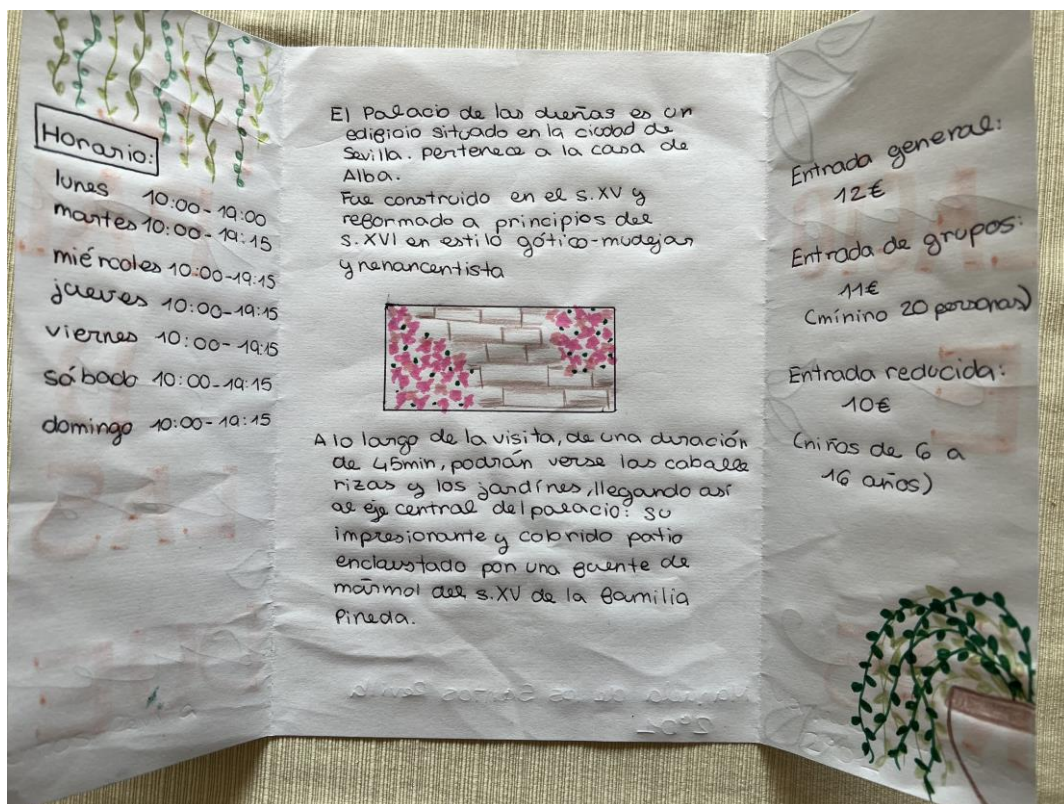 Horario:
lunes 10:00-19:00
martes 10:00-19:15
miércoles 10:00-19:15
jueves 10:00-19:15
viernes 10:00-19:15
sábado 10:00-19:15
domingo 10:00-19:15
El Palacio de las dueñas es un
edificio situado en la ciudad de
Sevilla. Pertenece a la casa de
Alba.
Fue construido en el s.XV y
reformado a principios del
s.XVI en estilo gótico-mudejar
y renancentista
A lo largo de la visita, de una duración
de 45min, podrán verse las caballe
rizas y los jardínes, llegando así
al eje central del palacio: su
impresionante y colorido patio
enclaustado por una fuente de
mármol del s.XV de la familia
Pineda.
Entrada general:
12€
Entrada de grupos:
11€
(mínino 20 personas)
Entrada reducida:
10€
(niños de 6 a
16 años)